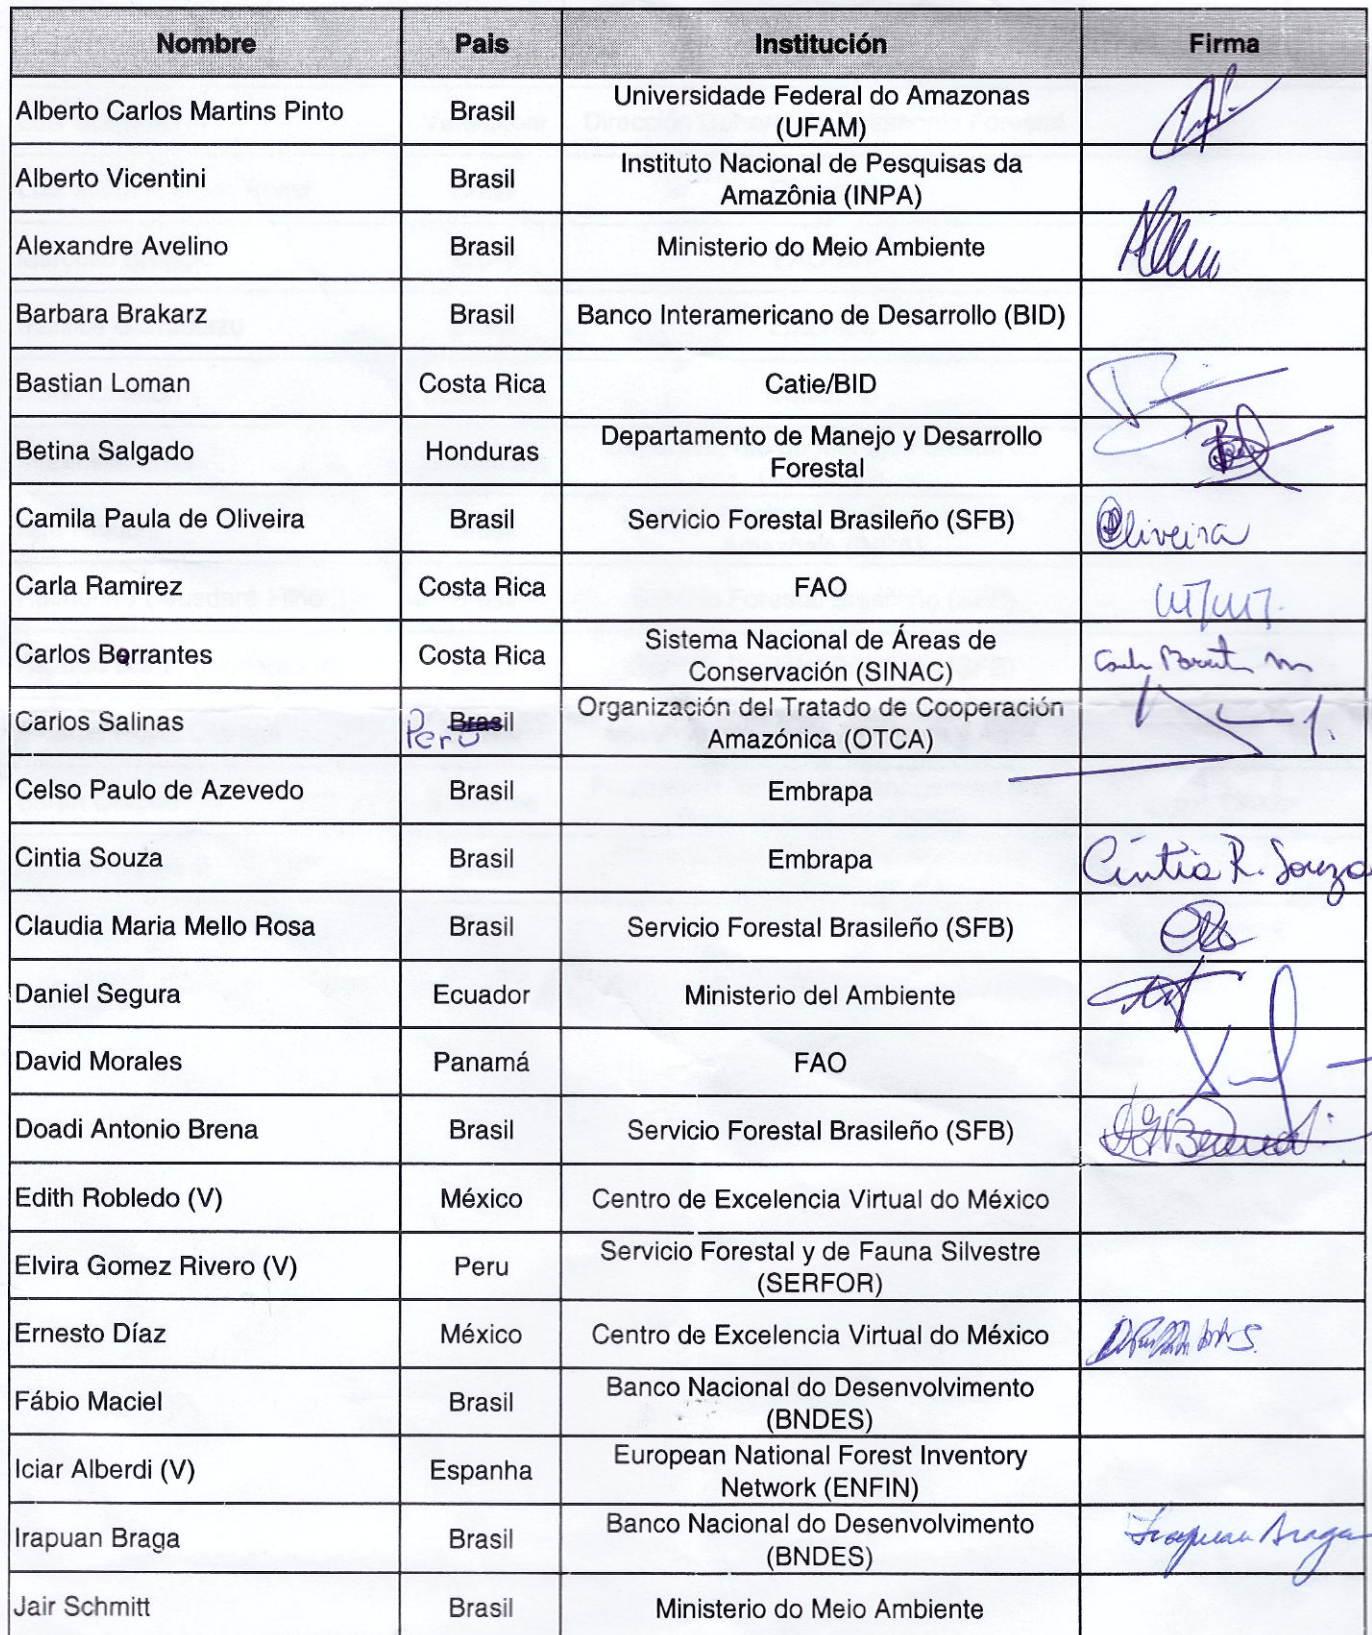 Nombre País Institución Firma
Alberto Carlos Martins Pinto Brasil Universidade Federal do Amazonas
(UFAM)
Alberto Vicentini Brasil Instituto Nacional de Pesquisas da
Amazônia (INPA)
Alexandre Avelino Brasil Ministerio do Meio Ambiente
Barbara Brakarz Brasil Banco Interamericano de Desarrollo (BID)
Bastian Loman Costa Rica Catie/BID
Betina Salgado Honduras Departamento de Manejo y Desarrollo
Forestal
Camila Paula de Oliveira Brasil Servicio Forestal Brasileño (SFB) Oliveira
Carla Ramirez Costa Rica FAO
Carlos Barrantes Costa Rica Sistema Nacional de Áreas de
Conservación (SINAC)
Carlos Salinas Perú Brasil Organización del Tratado de Cooperación
Amazónica (OTCA)
Celso Paulo de Azevedo Brasil Embrapa
Cintia Souza Brasil Embrapa Cintia R. Souza
Claudia Maria Mello Rosa Brasil Servicio Forestal Brasileño (SFB)
Daniel Segura Ecuador Ministerio del Ambiente
David Morales Panamá FAO
Doadi Antonio Brena Brasil Servicio Forestal Brasileño (SFB)
Edith Robledo (V) México Centro de Excelencia Virtual do México
Elvira Gomez Rivero (V) Peru Servicio Forestal y de Fauna Silvestre
(SERFOR)
Ernesto Díaz México Centro de Excelencia Virtual do México
Fábio Maciel Brasil Banco Nacional do Desenvolvimento
(BNDES)
Iciar Alberdi (V) Espanha European National Forest Inventory
Network (ENFIN)
Irapuan Braga Brasil Banco Nacional do Desenvolvimento
(BNDES) Irapuan Braga
Jair Schmitt Brasil Ministerio do Meio Ambiente